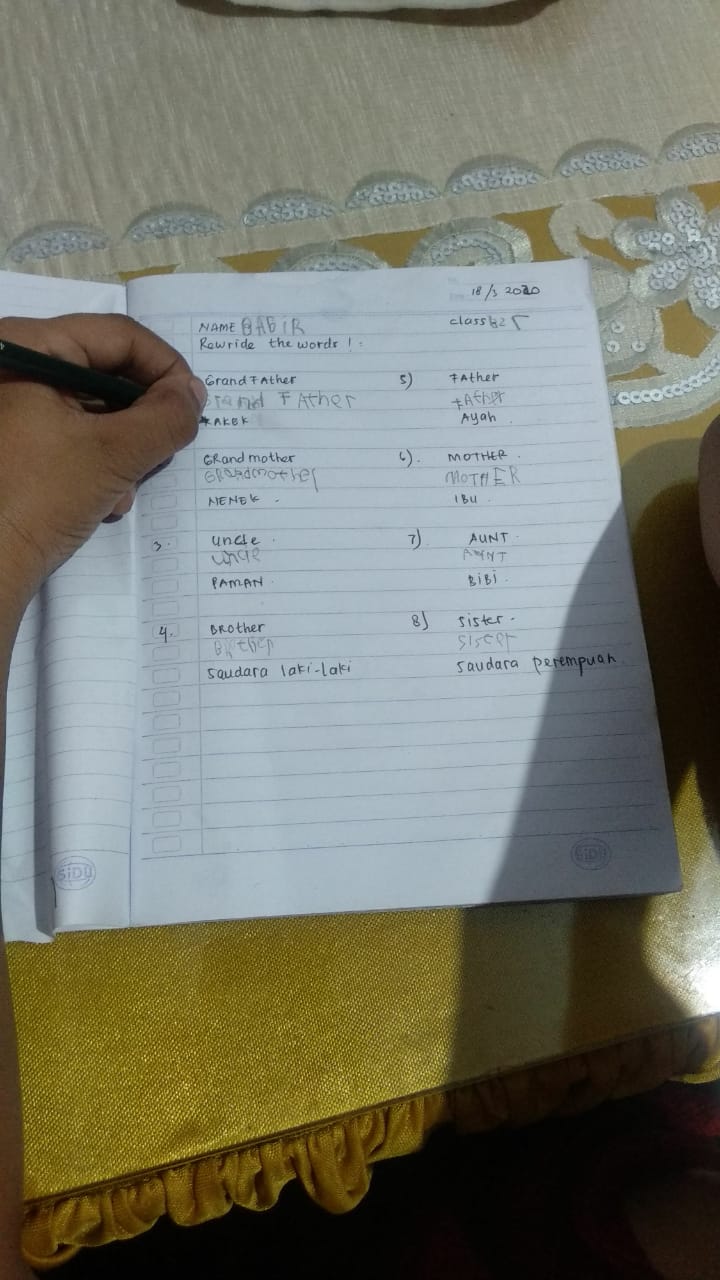 18/3 2020
NAME BABIR
Rewride the words ! :
Grand FAther
Grand FAther
KAKEK
GRandmother
GRandmother
NENEK .
3. Uncle .
Uncle
PAMAN .
4. BRother
BRother
Saudara laki-laki
5) FAther
FAther
Ayah .
6). MOTHER .
MOTHER
IBU .
7) AUNT .
AUNT
BiBi .
8) Sister .
Sister
Saudara perempuan .
SiDU
SiDU